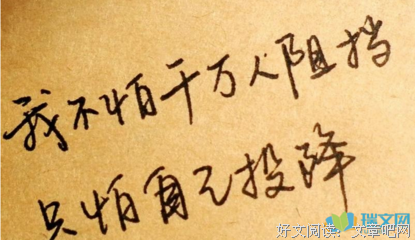 我不怕千万人阻挡
只怕自己投降
瑞文网
好文阅读：文章吧网